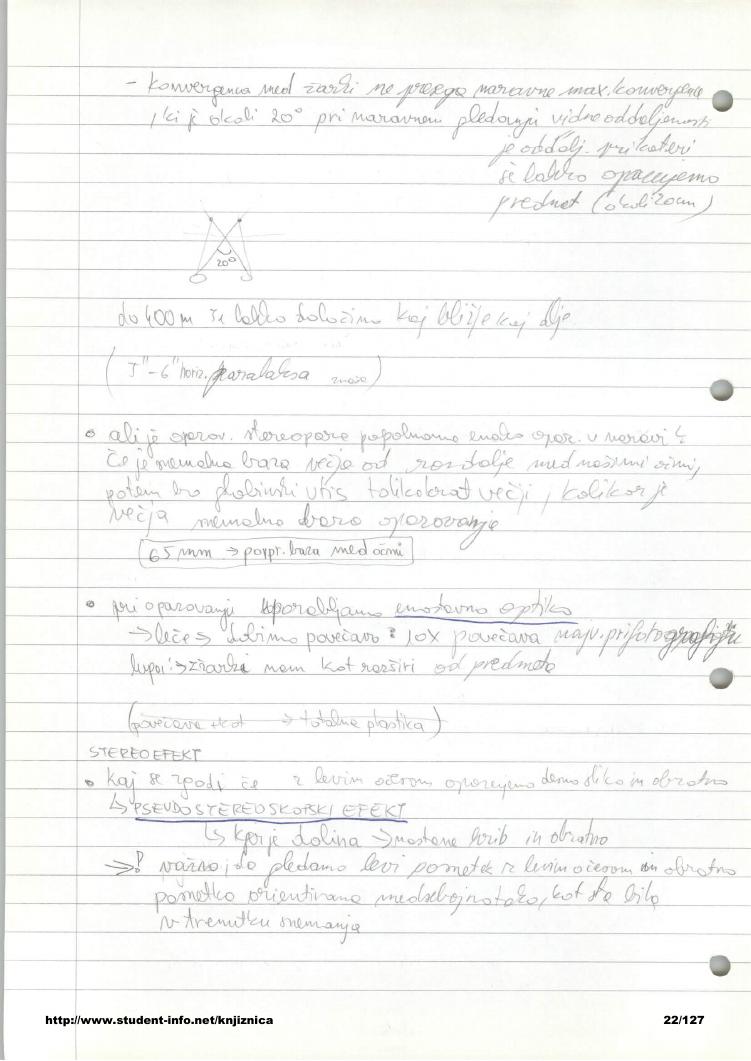 - Konvergenca med žarki ne presega naravne max. konvergence
, ki je okoli 20° pri naravnem gledanju vidne oddaljenosti
je oddalj. pri kateri
še lahko opazujemo
predmet (okoli 20cm)
20°
do 400 m še lahko določimo kaj bližje kaj dlje
( 5"-6" horiz. paralaksa znaša )
• ali je opazov. stereopara popolnoma enako opaz. v naravi?
Če je snemalna baza večja od razdalje med našimi očmi,
potem bo globinski vtis tolikokrat večji, kolikor je
večja snemalna baza opazovanja
65 mm → povpr. baza med očmi
• pri opazovanju uporabljamo enostavno optiko
→ leče → dobimo povečavo: 10x povečava najv. pri fotografiji
lupo: → z žarki nam kot razširi od predmeta
(povečava + kot → totalna plastika)
STEREOEFEKT
• kaj se zgodi če z levim očesom opazujemo desno sliko in obratno
↳ PSEUDOSTEREOSKOPSKI EFEKT
↳ Kjer je dolina → nastane hrib in obratno
→! važno, da gledamo levi posnetek z levim očesom in obratno
posnetka orientirana medsebojno tako, kot sta bila
v trenutku snemanja
http://www.student-info.net/knjiznica
22/127